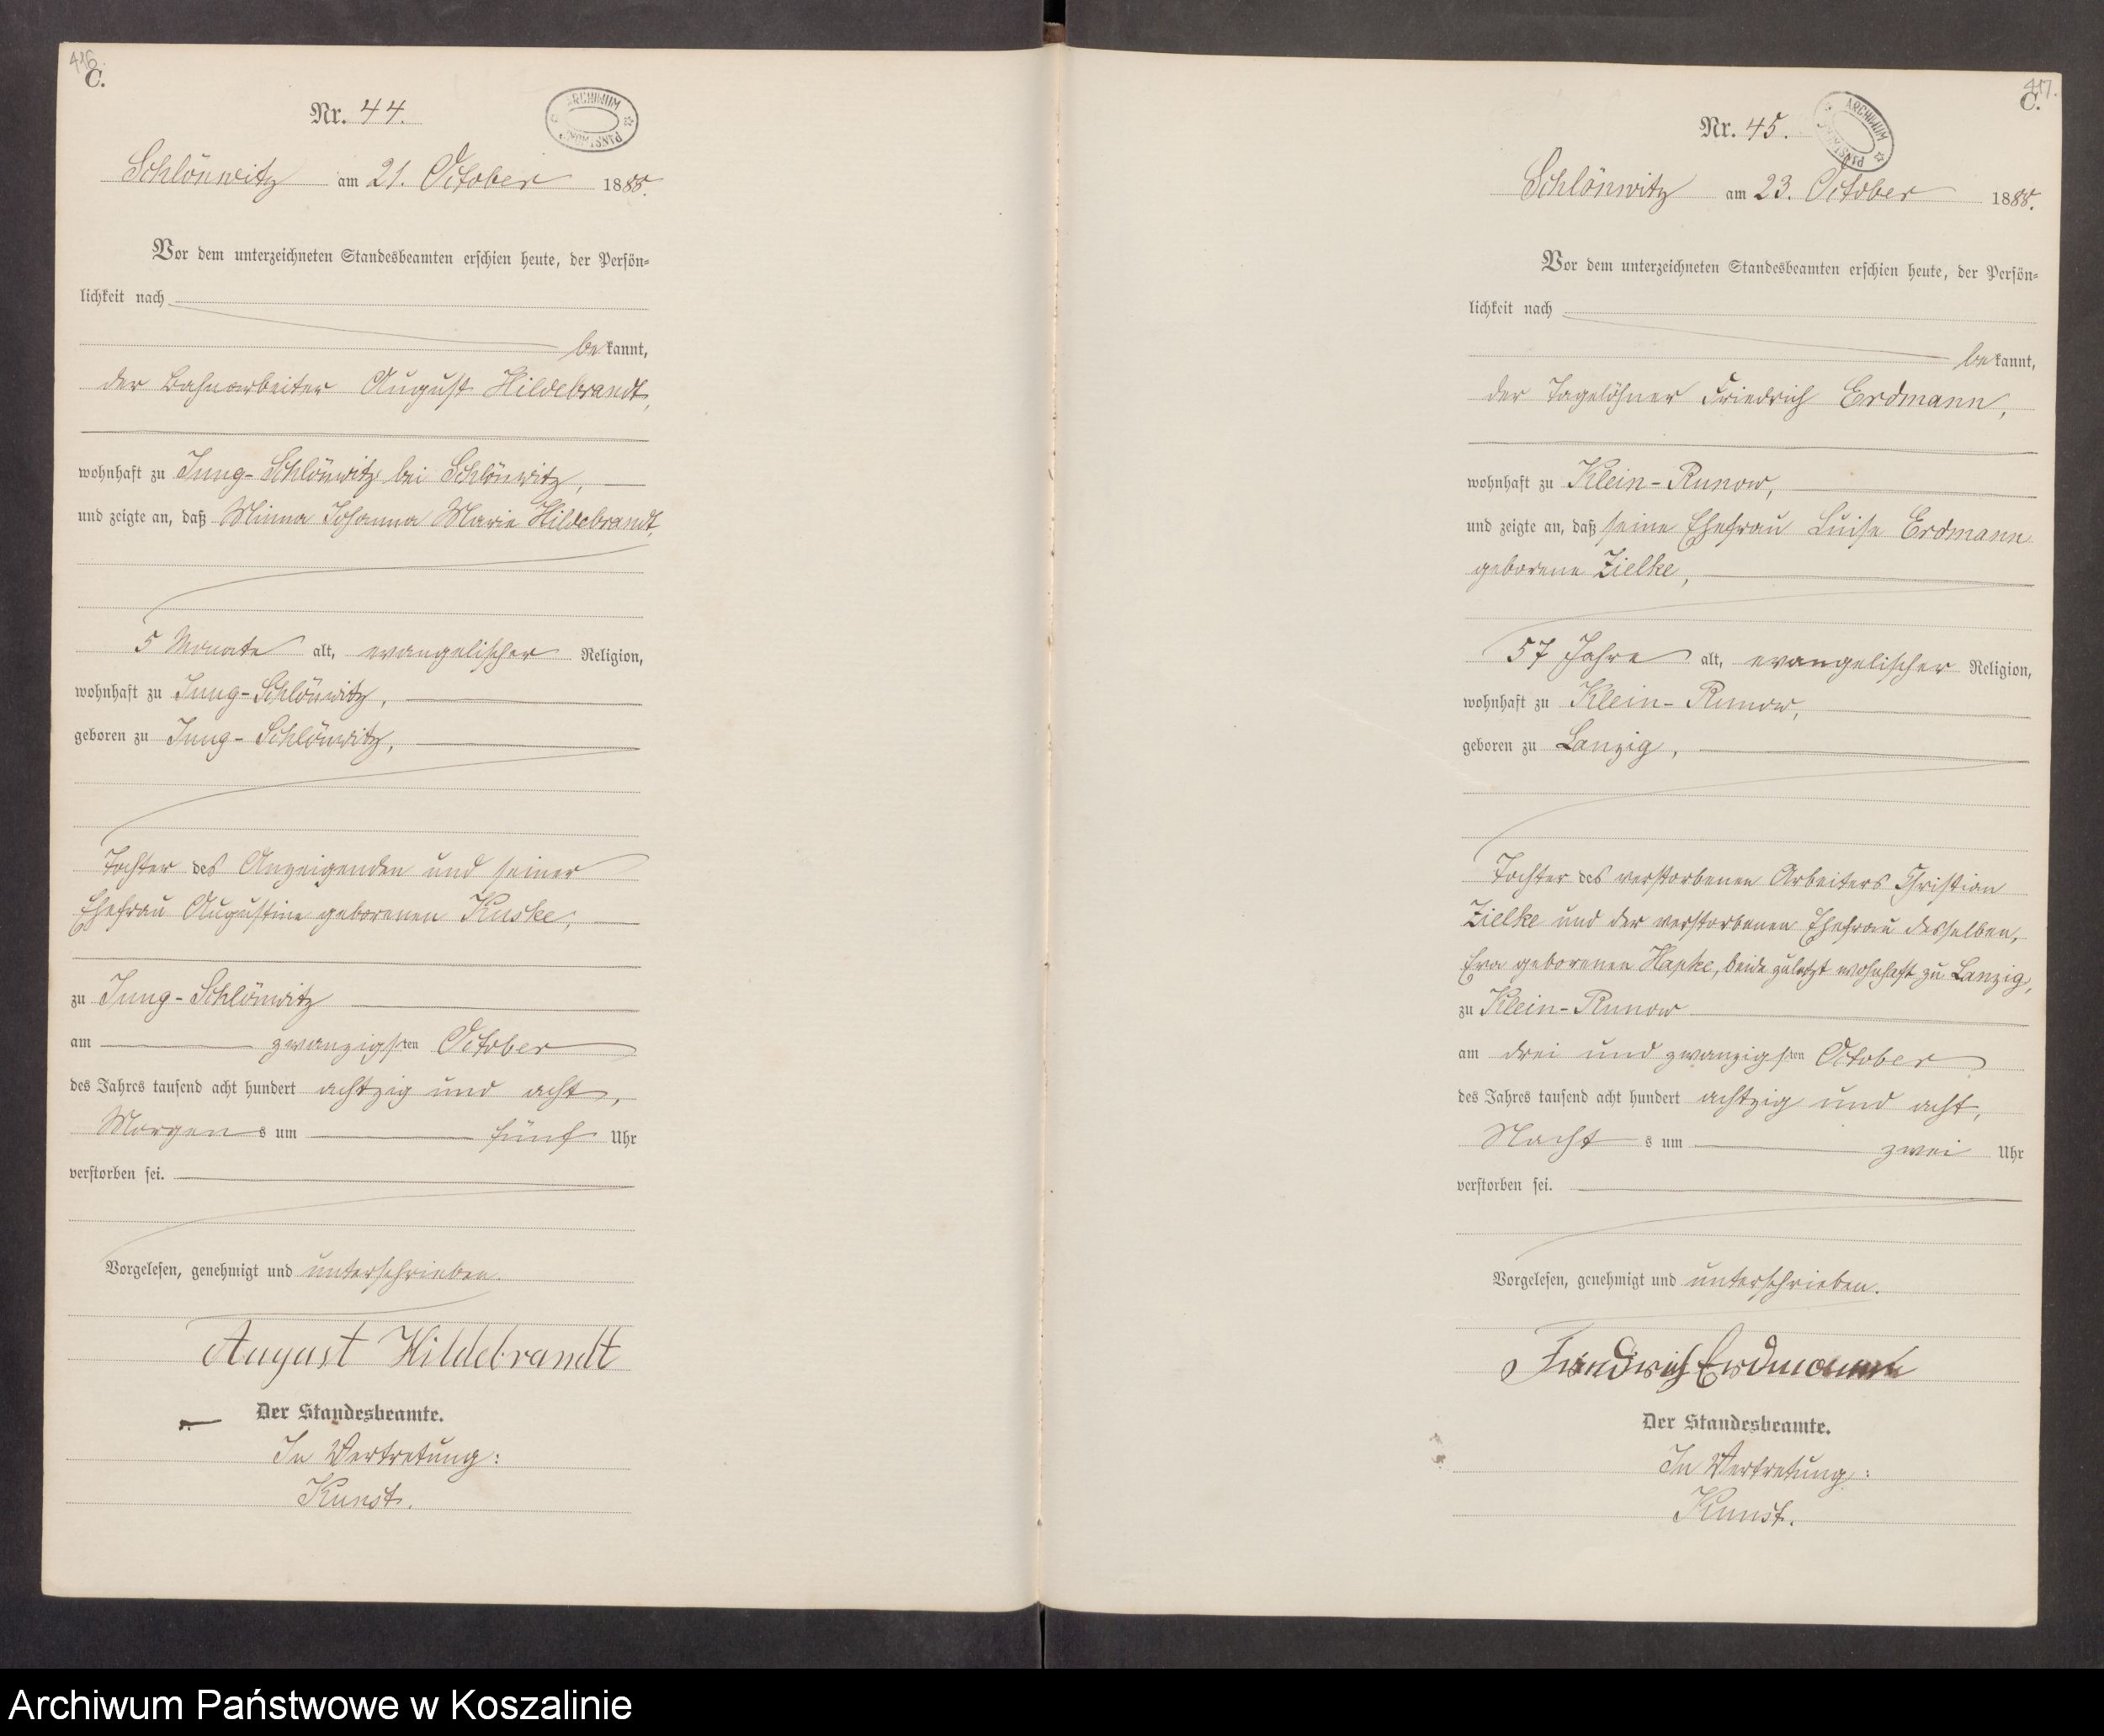 416.
C.
Nr. 44.
ARCHIWUM PAŃSTWOWE
Schlönwitz am 21. October 1888.
Vor dem unterzeichneten Standesbeamten erschien heute, der Persön-
lichkeit nach
bekannt,
der Bahnarbeiter August Hildebrandt,
wohnhaft zu Jung-Schlönwitz bei Schlönwitz,
und zeigte an, daß Minna Johanna Marie Hildebrandt,
5 Monate alt, evangelischer Religion,
wohnhaft zu Jung-Schlönwitz,
geboren zu Jung-Schlönwitz,
Tochter des Anzeigenden und seiner
Ehefrau Augustine geborenen Kuske,
zu Jung-Schlönwitz
am zwanzigsten October
des Jahres tausend acht hundert achtzig und acht,
Morgens um fünf Uhr
verstorben sei.
Vorgelesen, genehmigt und unterschrieben.
August Hildebrandt
Der Standesbeamte.
In Vertretung:
Kunst.
417.
C.
Nr. 45.
ARCHIWUM PAŃSTWOWE
Schlönwitz am 23. October 1888.
Vor dem unterzeichneten Standesbeamten erschien heute, der Persön-
lichkeit nach
bekannt,
der Tagelöhner Friedrich Erdmann,
wohnhaft zu Klein-Runow,
und zeigte an, daß seine Ehefrau Luise Erdmann
geborene Zielke,
57 Jahre alt, evangelischer Religion,
wohnhaft zu Klein-Runow,
geboren zu Lanzig,
Tochter des verstorbenen Arbeiters Christian
Zielke und der verstorbenen Ehefrau desselben,
Eva geborenen Hapke, beide zuletzt wohnhaft zu Lanzig,
zu Klein-Runow
am drei und zwanzigsten October
des Jahres tausend acht hundert achtzig und acht,
Nachts um zwei Uhr
verstorben sei.
Vorgelesen, genehmigt und unterschrieben.
Friedrich Erdmann
Der Standesbeamte.
In Vertretung:
Kunst.
Archiwum Państwowe w Koszalinie